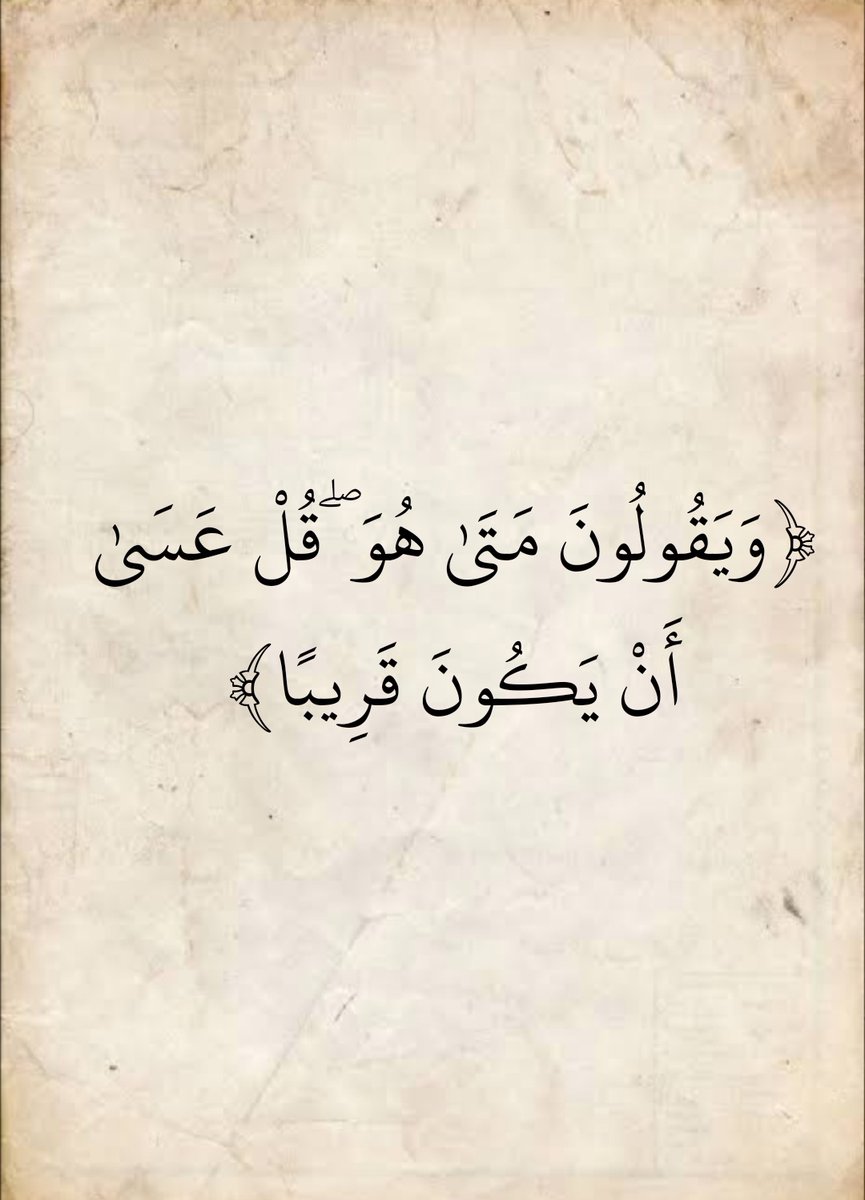 ﴿وَيَقُولُونَ مَتَىٰ هُوَ ۖ قُلْ عَسَىٰ
أَنْ يَكُونَ قَرِيبًا﴾